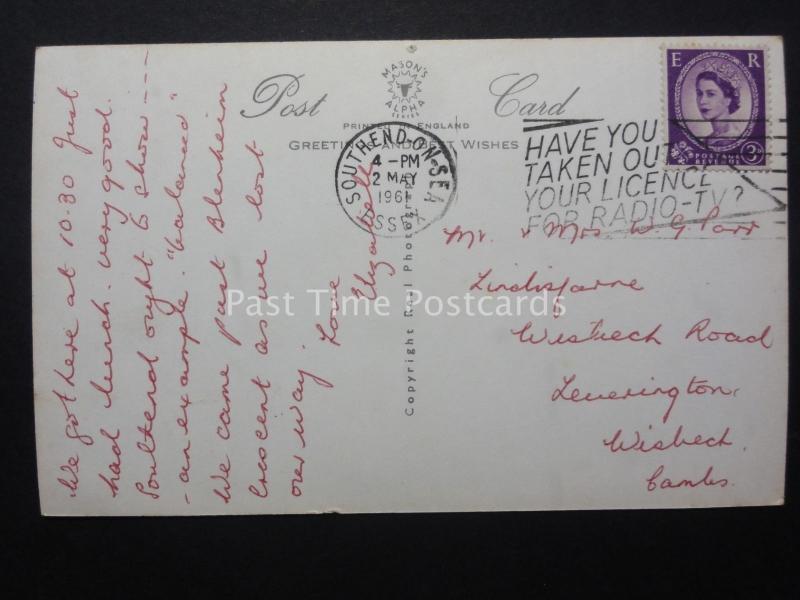 Post Card
MASON'S
ALPHA
SERIES
PRINTED IN ENGLAND
GREETINGS AND BEST WISHES
E R
POSTAGE
REVENUE
3D
SOUTHEND-ON-SEA
4 - PM
2 MAY
1961
ESSEX
HAVE YOU
TAKEN OUT
YOUR LICENCE
FOR RADIO-TV?
Copyright Real Photograph
We got here at 10.30 Just
had lunch. very good.
Poultend ought to show ---
- an example. "balanced"
We came past Blenheim
Crescent as we lost
over way Love
Elizabeth
Mr. & Mrs W G Parr
Lindisfarne
Wisbech Road
Leverington,
Wisbech.
Cambs.
Past Time Postcards